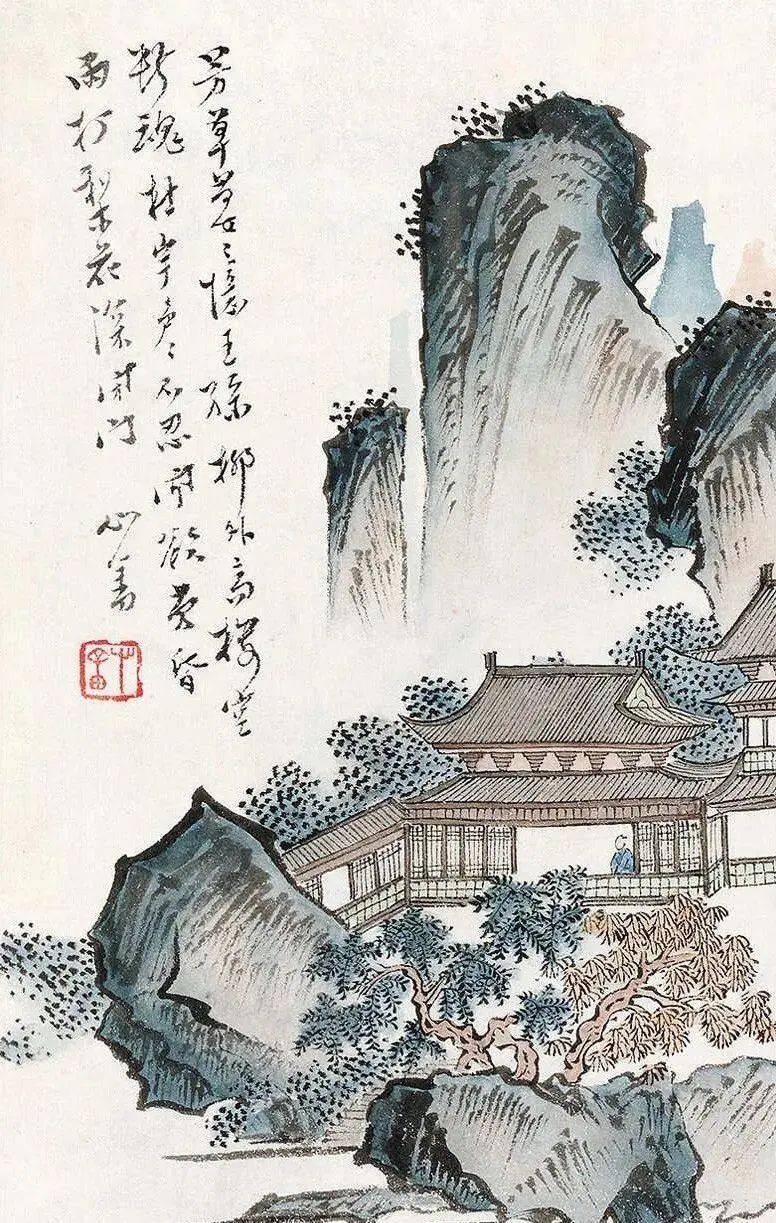 芳草萋〻憶王孫柳外高樓空
斷魂杜宇聲〻不忍聞欲黃昏
雨打梨花深閉門 心畬